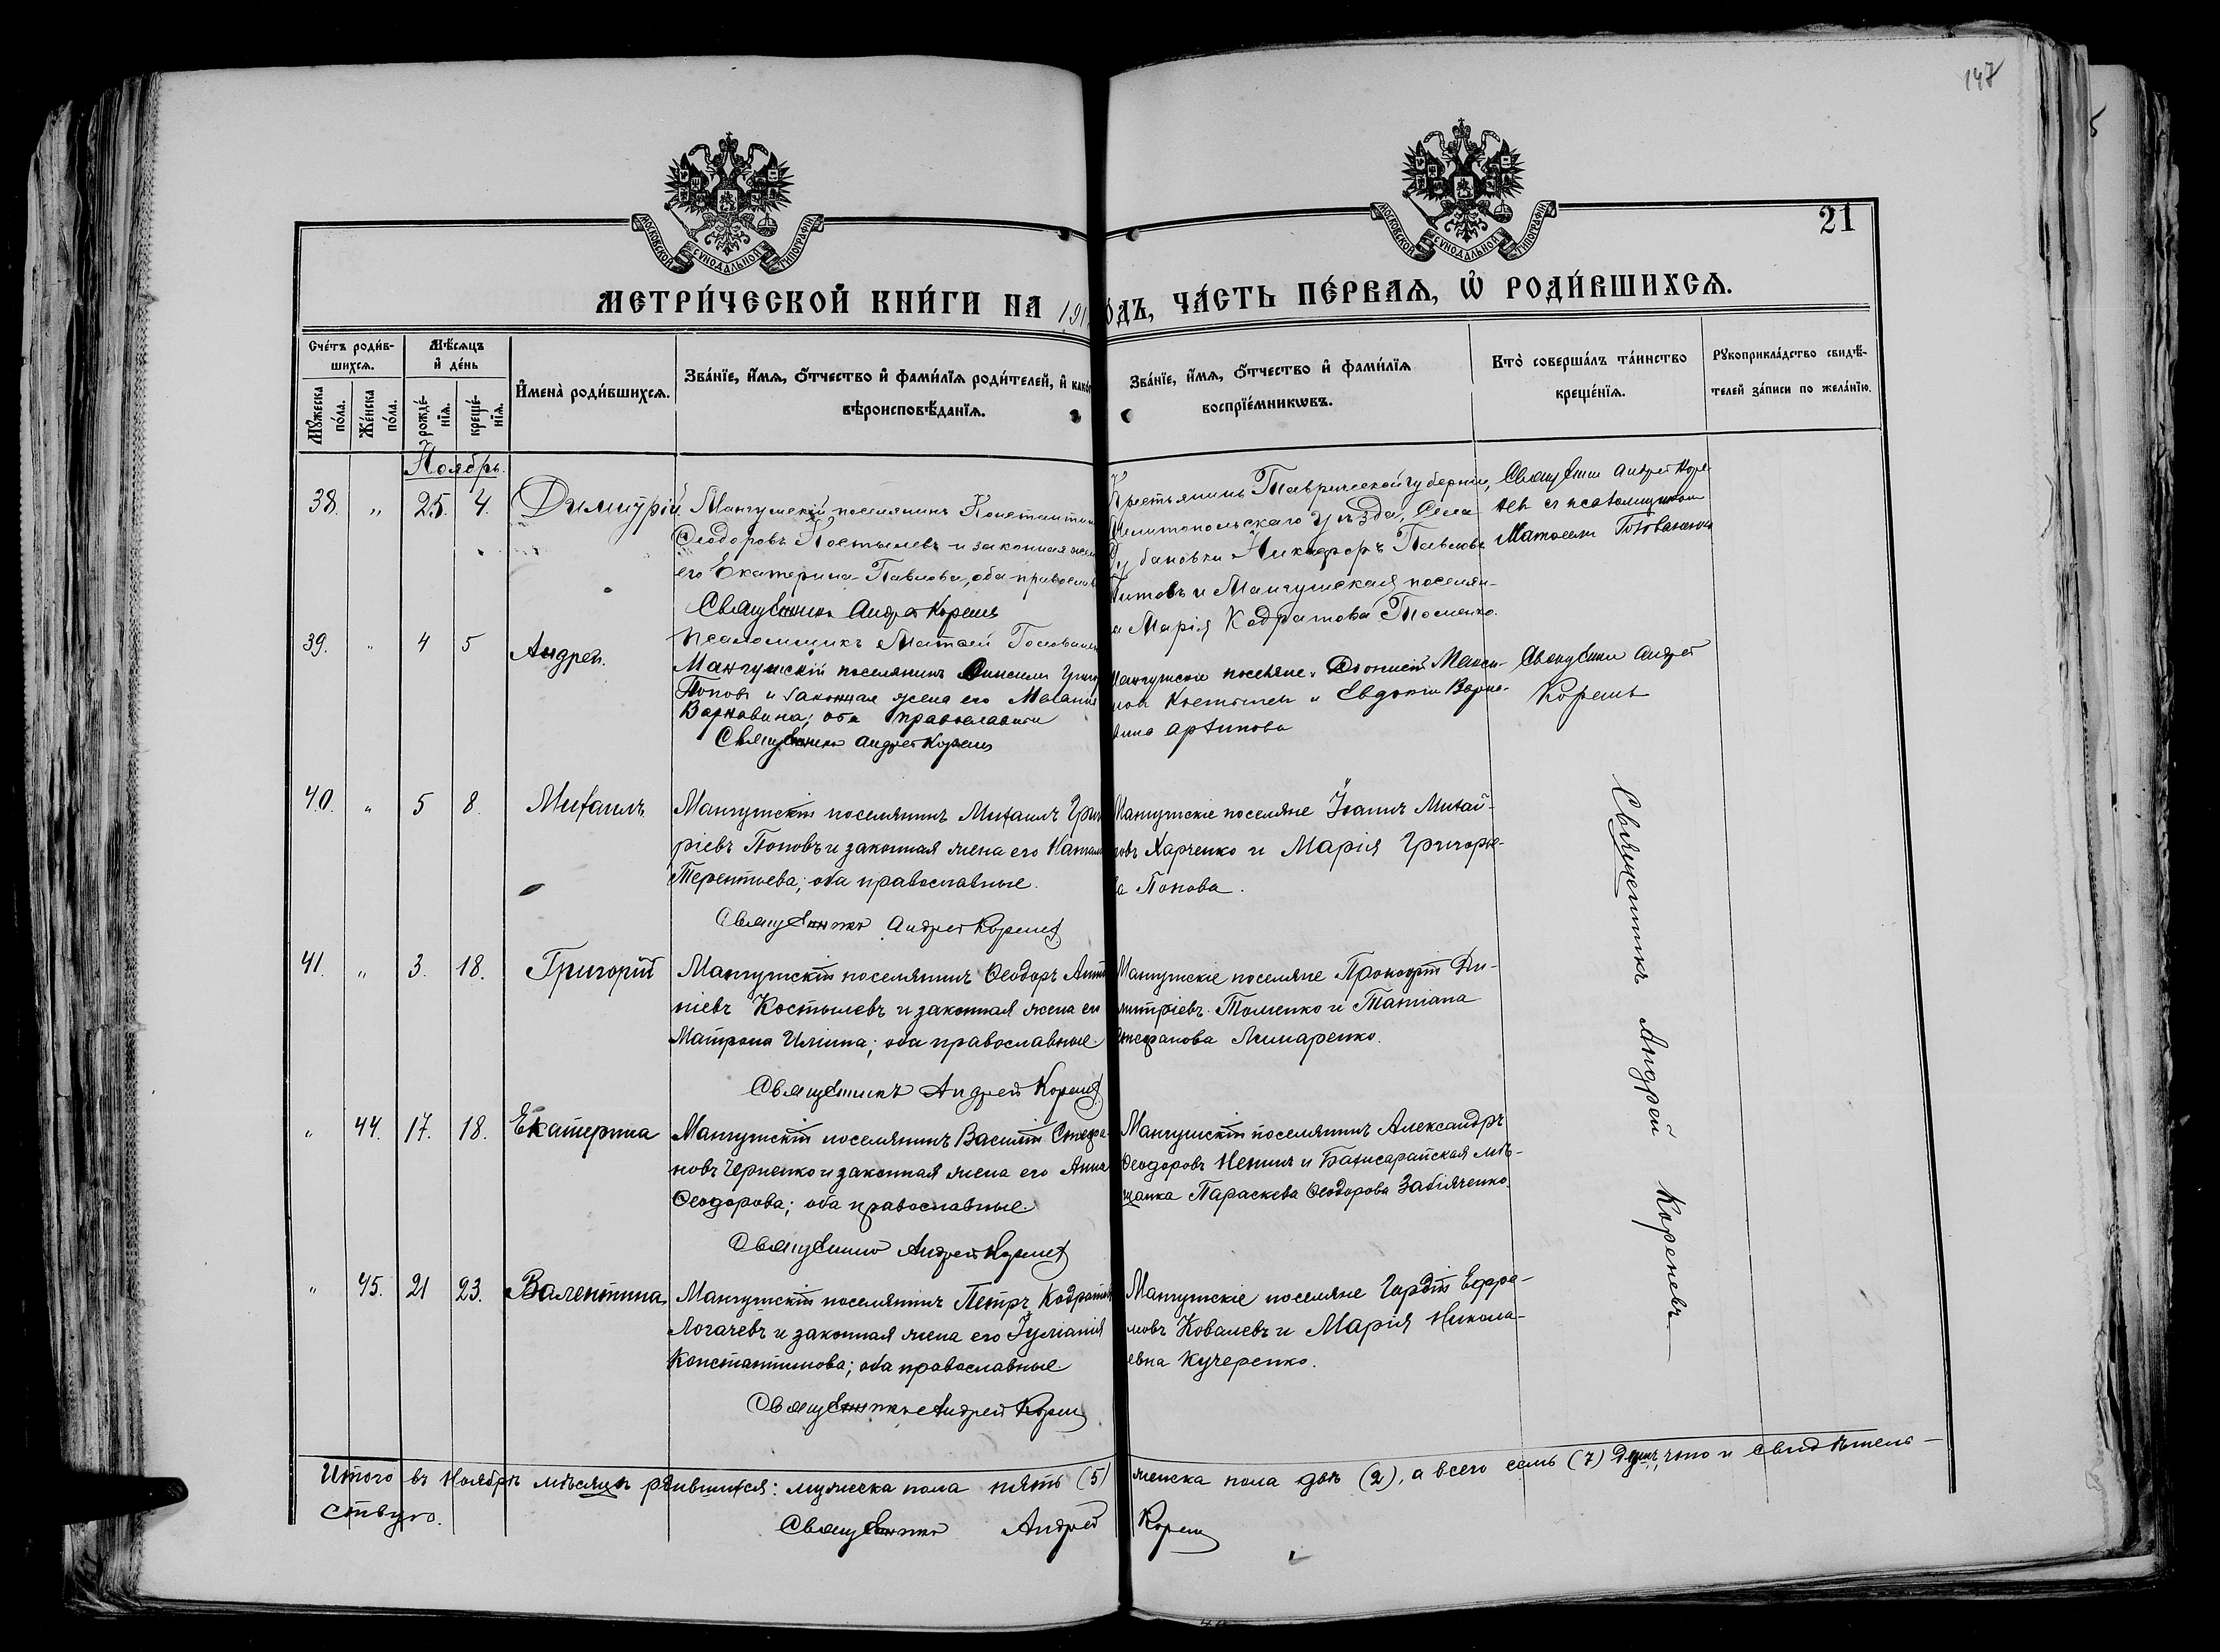 147
21
МОСКОВСКОЙ СѴНОДАЛЬНОЙ ТИПОГРАФІИ
МОСКОВСКОЙ СѴНОДАЛЬНОЙ ТИПОГРАФІИ
МЕТРИ́ЧЕСКОЙ КНИ́ГИ НА 191 ОДЪ, ЧА́СТЬ ПЕ́РВАѦ, Ѡ҆ РОДИ́ВШИХСѦ.
Сче́тъ роди́в-
шихсѧ.
Мꙋ́жеска по́ла.
Же́нска по́ла.
Мѣ́сѧцъ
и҆ де́нь
рожде́-
нїѧ.
креще́-
нїѧ.
И҆мена̀ роди́вшихсѧ.
Зва́нїе, и҆́мѧ, ѻ҆́тчество и҆ фами́лїѧ роди́телей, и҆ како́
вѣроисповѣ́данїѧ.
Зва́нїе, и҆́мѧ, ѻ҆́тчество и҆ фами́лїѧ
воспрїе́мникѡвъ.
Кто̀ соверша́лъ та́инство
креще́нїѧ.
Рꙋкоприкла́дство свидѣ́-
телей за́писи по жела́нїю.
Ноябрь.
38. " 25. 4. Димитрій
Мангушскій поселянинъ Константин
Ѳеодоровъ Костылевъ и законная жен
его Екатерина Павлова, оба православ
Священникъ Андрей Кореневъ
Псаломщикъ Матѳей
Крестьянинъ Таврической губерніи,
Мелитопольскаго уѣзда, Села
Никифоръ Павловъ
Титовъ и Мангушская поселян-
а Марія Кодратова Томенко.
Священникъ Андрей Коре-
невъ съ псаломщикомъ
Матѳеемъ
39. " 4 5 Андрей.
Мангушскій поселянинъ
Поповъ и законная жена его Меланія
оба православные
Священникъ Андрей Кореневъ
Мангушскіе поселяне: Діонисій Макси-
мовъ Костылевъ и Евдокія
Священникъ Андрей
Кореневъ
40. " 5 8. Михаилъ
Мангушскій поселянинъ Михаилъ Григо
ріевъ Поповъ и законная жена его Натал
Терентьева; оба православные.
Священникъ Андрей Кореневъ
Мангушскіе поселяне Іоаннъ Михай-
ловъ Харченко и Марія Григорье-
ва Попова.
41. " 3. 18. Григорій
Мангушскій поселянинъ Ѳеодоръ Анто
ніевъ Костылевъ и законная жена ег
Матрона Ильина; оба православные.
Священникъ Андрей Кореневъ
Мангушскіе поселяне Прокофій Ди-
митріевъ Томенко и Татіана
Стефанова Лимаренко.
" 44. 17. 18. Екатерина
Мангушскій поселянинъ Василій Стефа-
новъ Черненко и законная жена его Анна
Ѳеодорова; оба православные.
Священникъ Андрей Кореневъ
Мангушскій поселянинъ Александръ
Ѳеодоровъ и Бахчисарайская мѣ-
щанка Параскева Ѳеодорова Забіяченко
" 45. 21 23. Валентина.
Мангушскій поселянинъ Петръ Кодратов
Логачевъ и законная жена его Іуліанія
Константинова; оба православные
Священникъ Андрей Кореневъ
Мангушскіе поселяне Гордій Ефре-
мовъ Ковалевъ и Марія Никола-
евна Кучеренко.
Священникъ Андрей Кореневъ
Итого въ Ноябрѣ мѣсяцѣ родившихся: мужеска пола пять (5) женска пола двѣ (2), а всего семь (7) душъ, что и свидѣтель-
ствую.
Священникъ Андрей Кореневъ